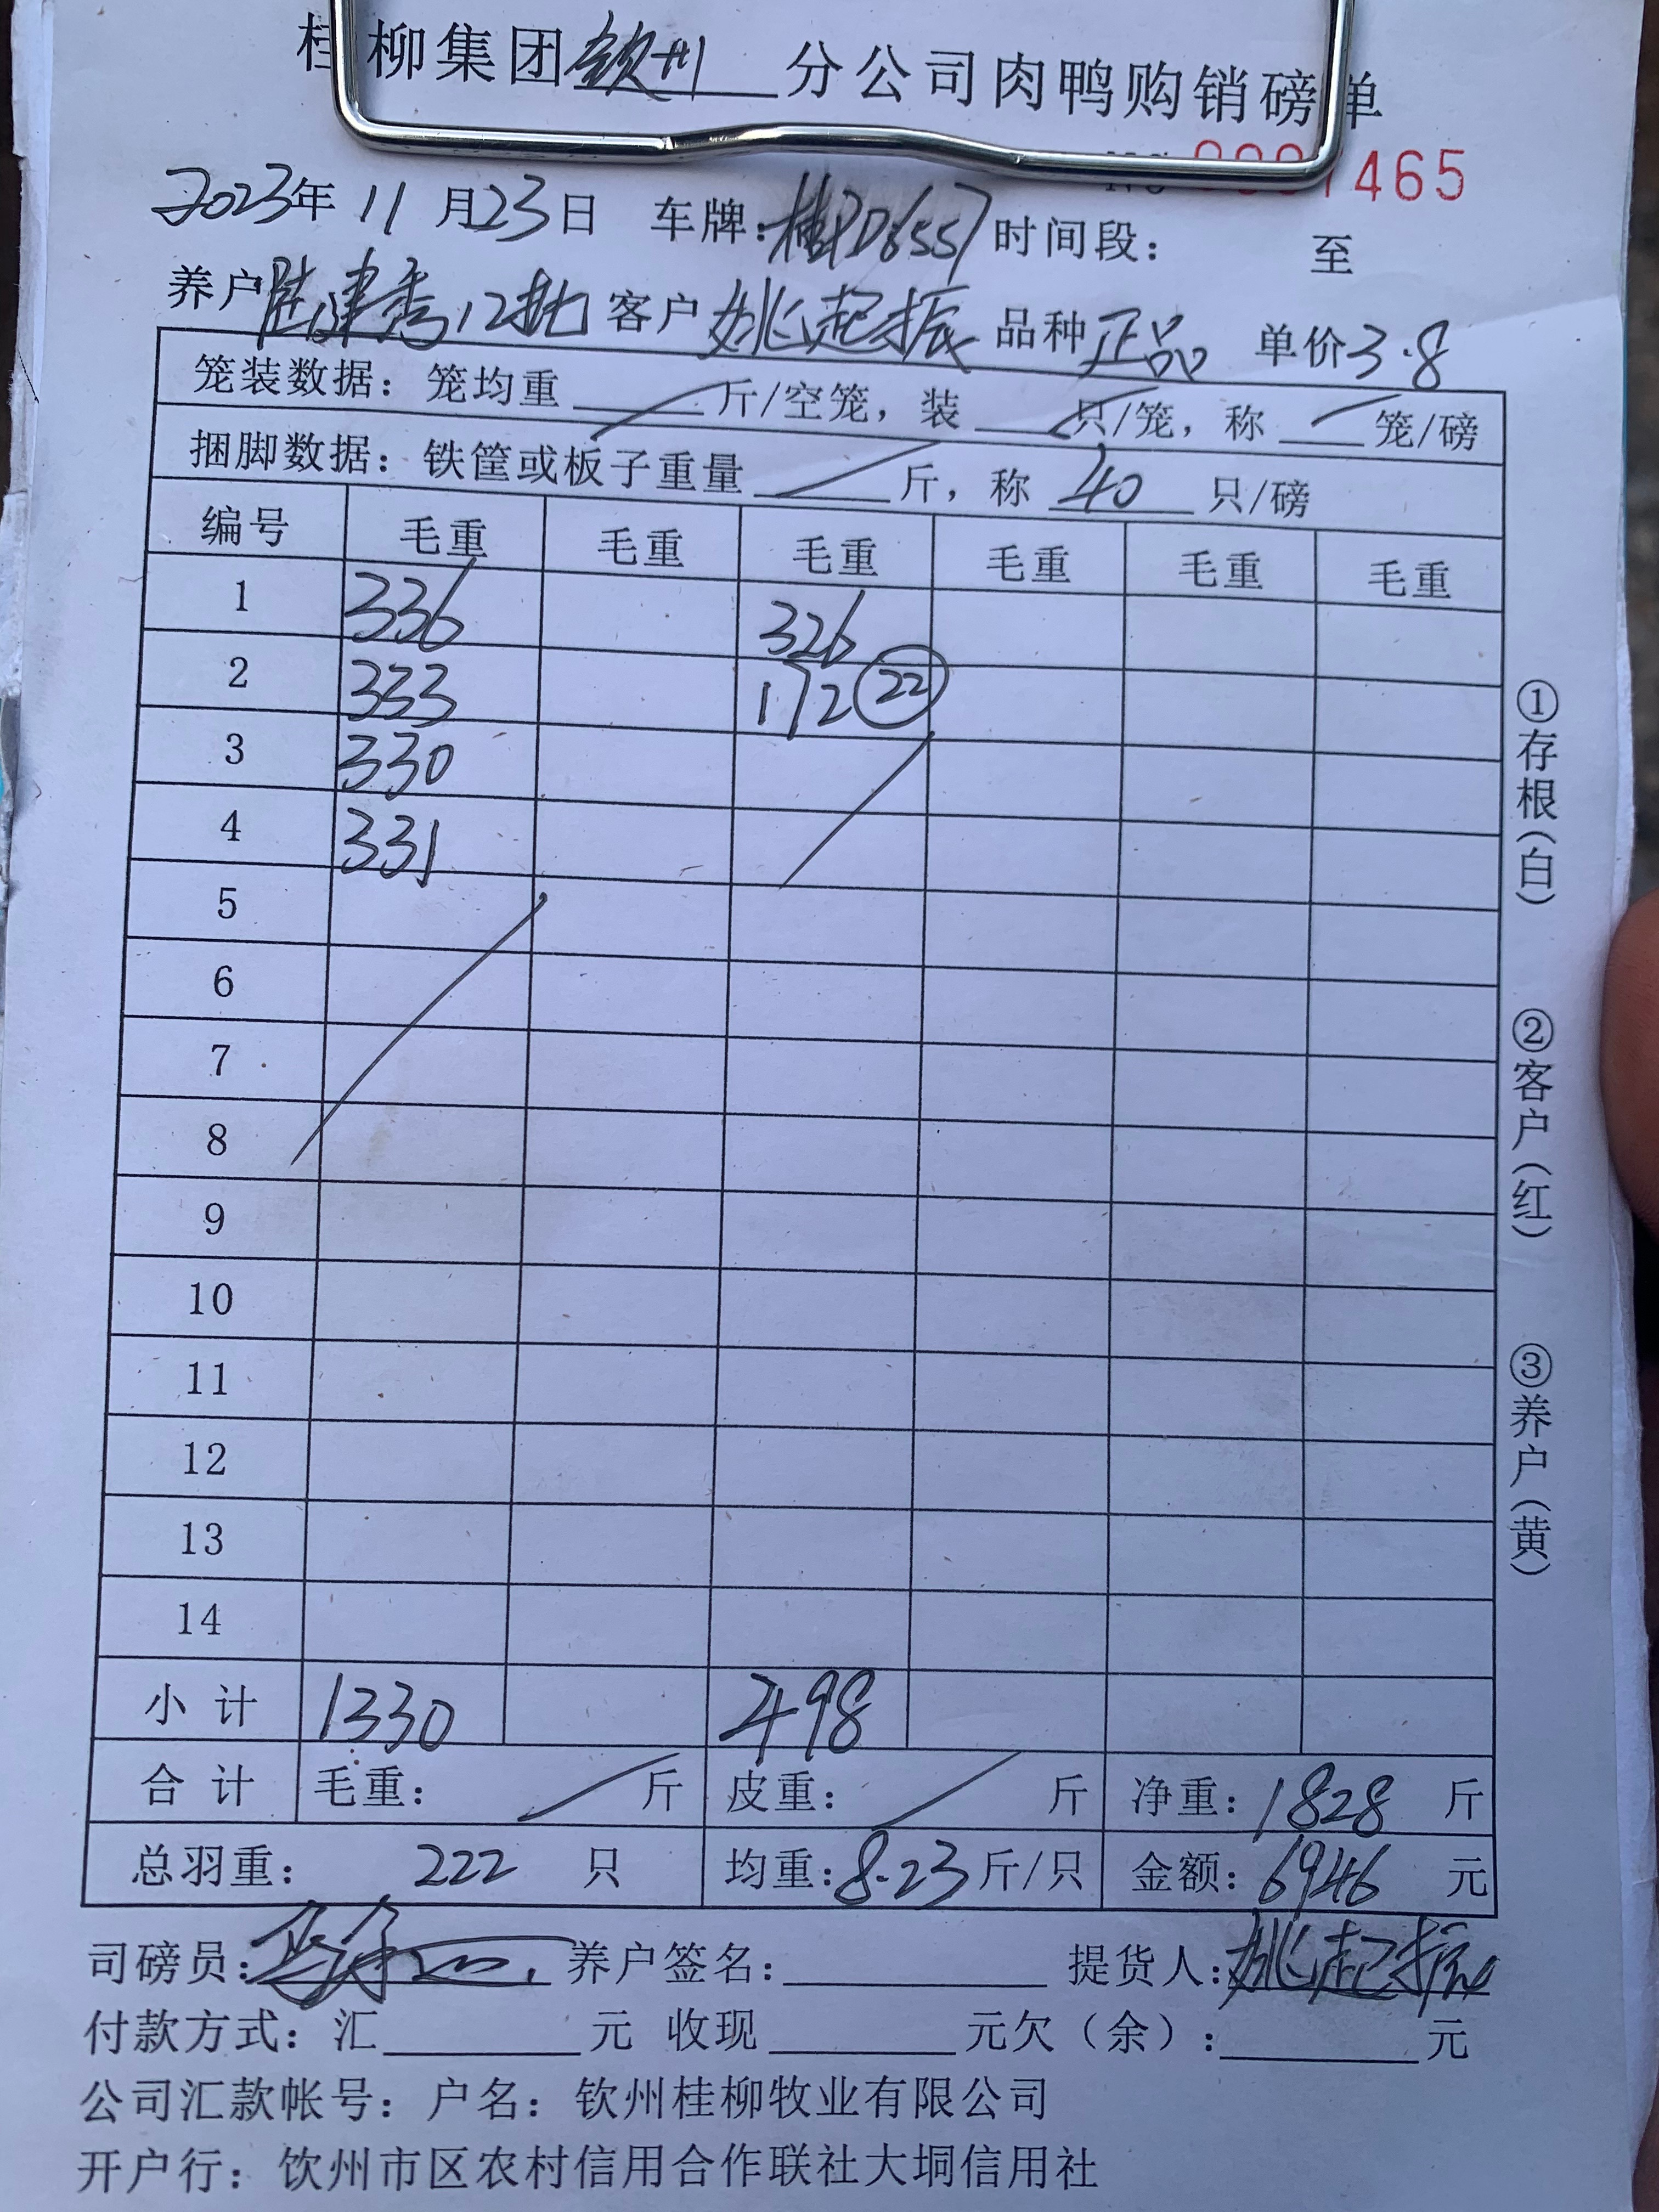 桂柳集团钦州分公司肉鸭购销磅单
465
2023年11月23日 车牌:桂PD6557 时间段: 至
养户 陆建秀12批 客户 姚起振 品种 正品 单价3.8
笼装数据: 笼均重 / 斤/空笼, 装 / 只/笼, 称 / 笼/磅
捆脚数据: 铁筐或板子重量 / 斤, 称 40 只/磅
编号 毛重 毛重 毛重 毛重 毛重 毛重
1 336 326
2 333 172 ㉒
3 330
4 331
5
6
7
8
9
10
11
12
13
14
小计 1330 498
合计 毛重: / 斤 皮重: / 斤 净重: 1828 斤
总羽重: 222 只 均重: 8.23 斤/只 金额: 6946 元
司磅员: 养户签名: 提货人: 姚起振
付款方式: 汇 元 收现 元欠(余): 元
公司汇款帐号: 户名: 钦州桂柳牧业有限公司
开户行: 饮州市区农村信用合作联社大垌信用社
①存根(白)
②客户(红)
③养户(黄)